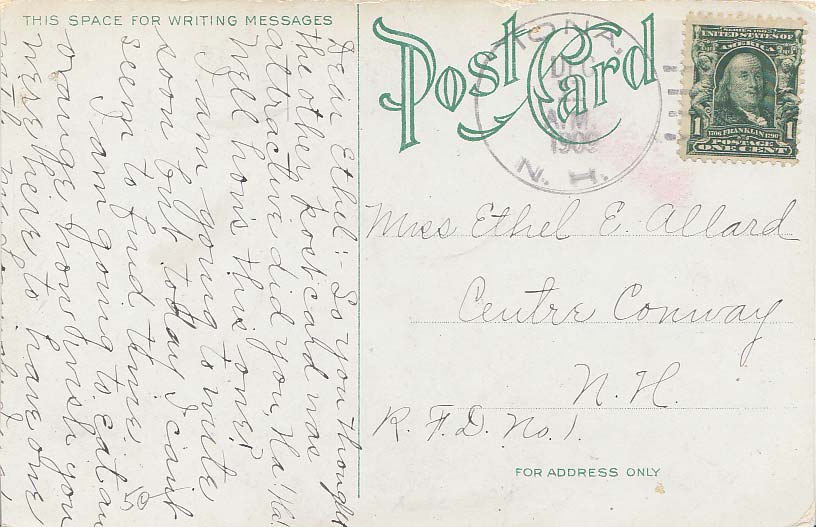 THIS SPACE FOR WRITING MESSAGES
Post Card
DEC
A.M.
190
N. H.
SERIES 1902
UNITED STATES OF
AMERICA
1 1
1706 FRANKLIN 1790
POSTAGE
ONE CENT
Dear Ethel:- So you thought
the other post card was
attractive did you, Ha! Ha!
Well how's this one?
I am going to write
soon but today I can't
seem to find time.
I am going to eat an
orange now wish you
were here to have one
with me
Miss Ethel E. Allard
Centre Conway
N. H.
R. F. D. No. 1.
FOR ADDRESS ONLY